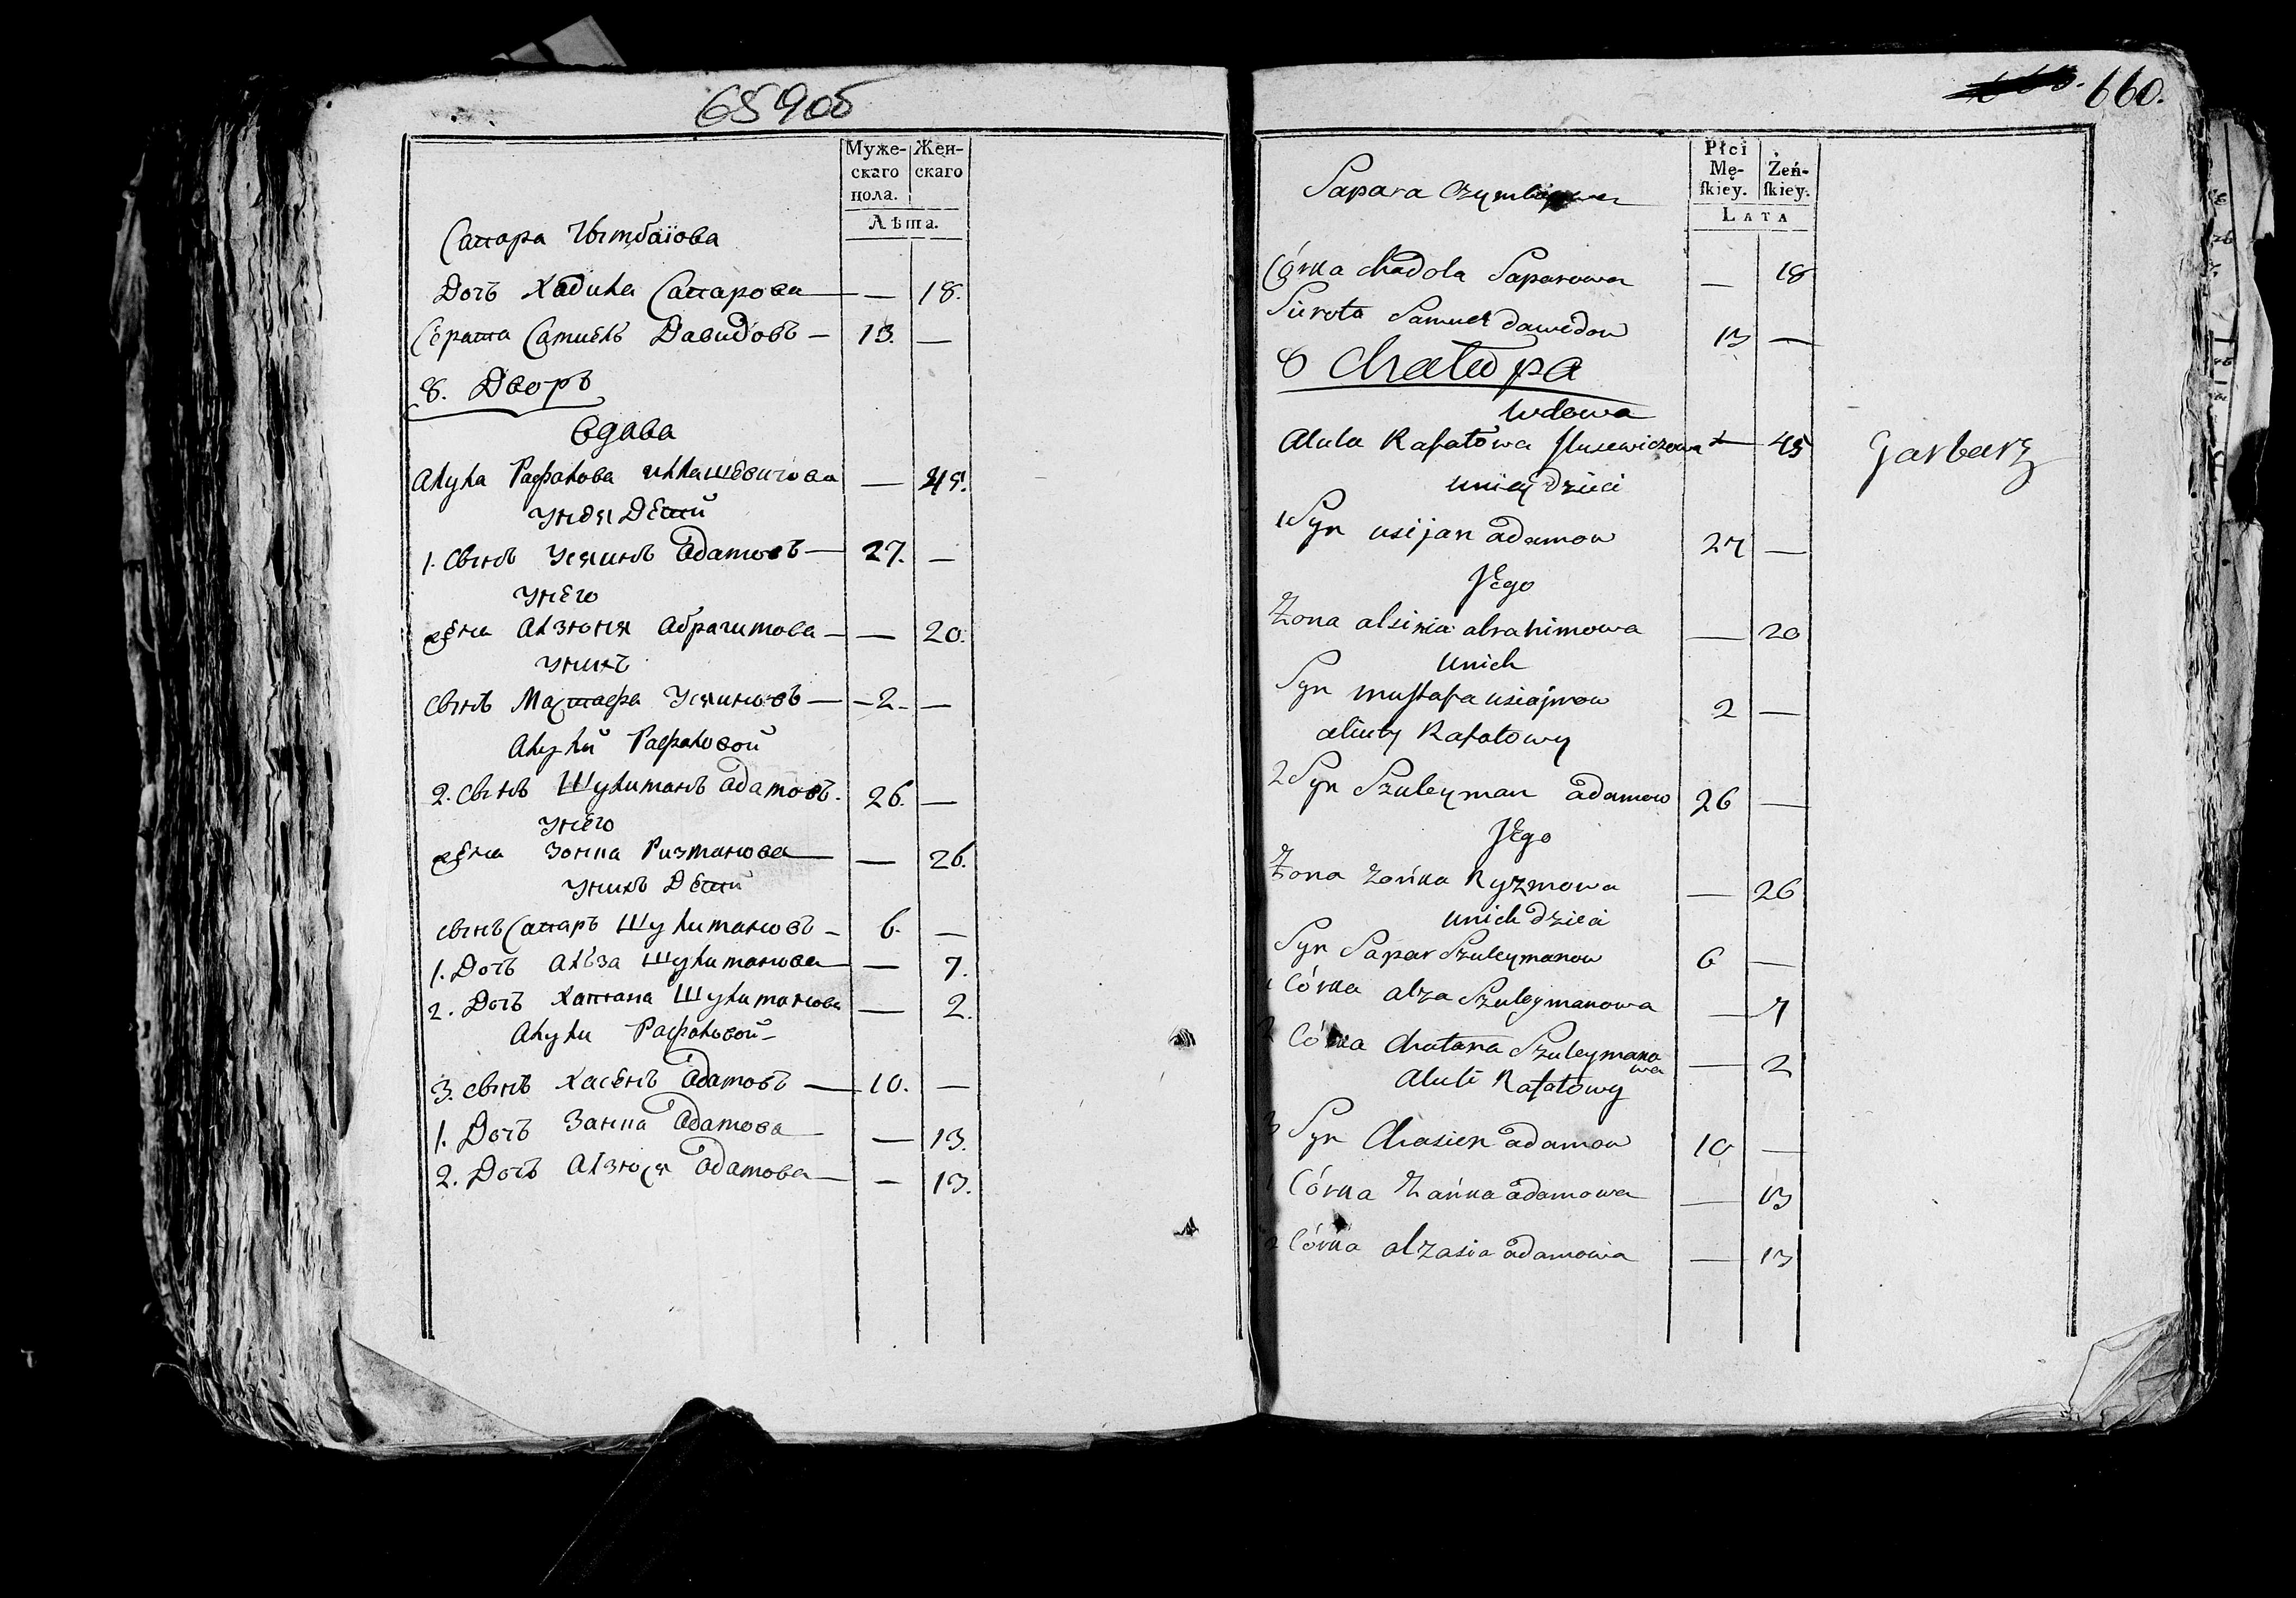 659об
Муже-
скаго
пола.
Жен-
скаго
Лѣта.
Сапара Чымбаiова
Дочь Хадила Сапарова — — 18.
Сѣрота Самуель Давидовъ — 13. —
8. Дворъ
Вдава
Алула Рафалова Илиашевичова — 45.
Унея Дѣтей
1. Сынъ Усяинъ Адамовъ — 27. —
Унего
жена Алзюня Абрагимова — — 20.
Унихъ
Сынъ Мастафа Усяиновъ — 2. —
Алулй Рафаловой
2. Сынъ Шулиманъ Адамовъ. 26. —
Унего
жена Зонка Ризманова — — 26.
Унихъ Дѣтей
сынъ Сапаръ Шулимановъ — 6. —
1. Дочь Альза Шулиманова — — 7.
2. Дочь Хапана Шулиманова — 2.
Алули Рафаловой —
3. сынъ Хасѣнъ Адамовъ — 10. —
1. Дочь Занка Адамова — 13.
2. Дочь Алзюся Адамова — — 13.
660.
Płci
Mę-
ſkiey.
Żeń-
ſkiey.
LATA
Sapara
Córka Chadola Saparowa — 18
Sierota Samuel Dawidow 13 —
8 Chałupa
Wdowa
Alula Rafałowa Iluszewiczowa — 45
Garbarz
Uniey dzieci
1 Syn Usijan Adamow 27 —
Jego
Żona Alsinia Abrahimowa — 20
Unich
Syn Mustafa Usiajnow 2 —
Aluly Rafałowy
2 Syn Szuleyman Adamow 26 —
Jego
Żona Zońka Ryzmowa — 26
Unich dzieci
Syn Sapar Szuleymanow 6 —
1 Córka Alza Szuleymanowa — 7
2 Córka Chatana Szuleymano
wa — 2
Aluli Rafałowy
3 Syn Chasien Adamow 10 —
1 Córka Zańka Adamowa — 13
2 Córka Alzasia Adamowa — 13